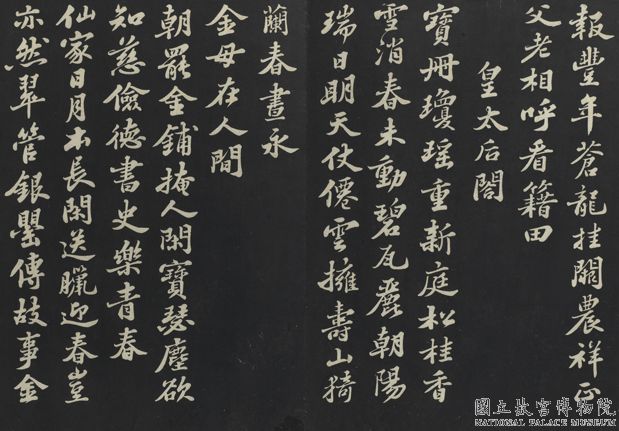 報豐年蒼龍挂闕農祥正
父老相呼看籍田
皇太后閤
寶冊瓊瑤重新庭松桂香
雪消春未動碧瓦麗朝陽
瑞日明天仗僊雲擁壽山猗
蘭春晝永
金母在人間
朝罷金鋪掩人閑寶瑟塵欲
知慈儉德書史樂青春
仙家日月本長閑送臘迎春豈
亦然翠管銀罌傳故事金
國立故宮博物院
NATIONAL PALACE MUSEUM